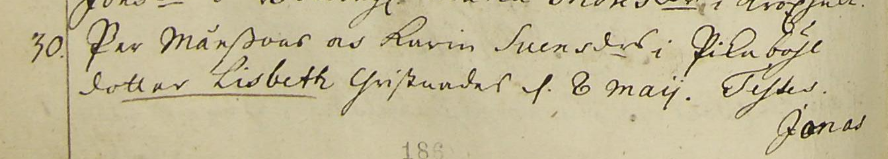 Jons i
30. Per Månssons os Karin Suensdrs i Pikabohl
dotter Lisbeth Christnades d. 8 maij. Testes.
Jonas
186